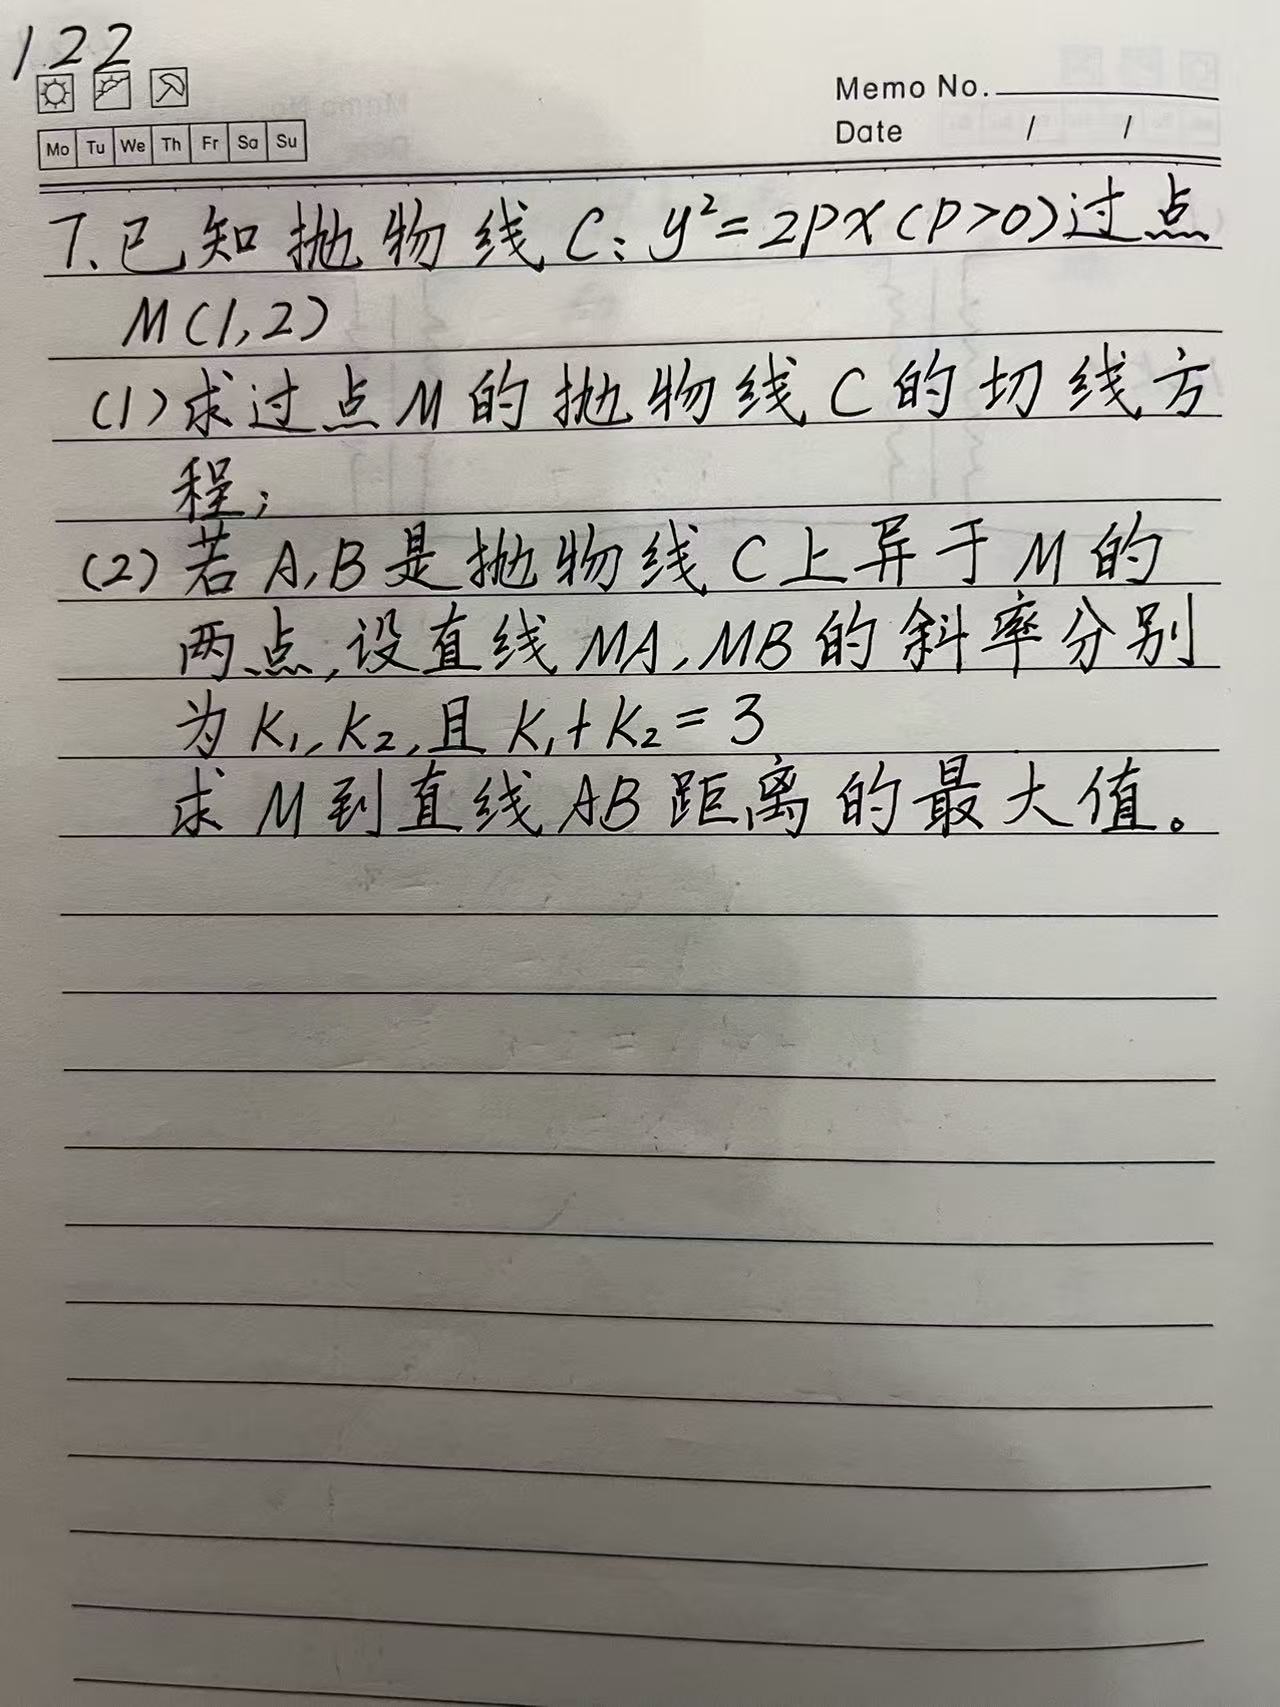 122
Memo No.
Mo Tu We Th Fr Sa Su
Date / /
7.已知抛物线C:y²=2px(p>0)过点
M(1,2)
(1)求过点M的抛物线C的切线方
程;
(2)若A,B是抛物线C上异于M的
两点,设直线MA,MB的斜率分别
为K₁,K₂,且K₁+K₂=3
求M到直线AB距离的最大值。